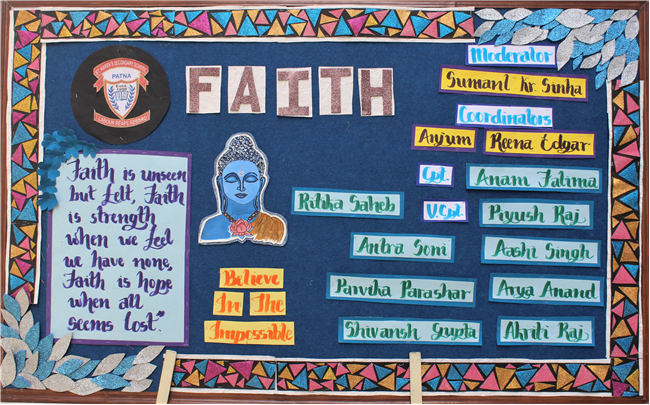 ST. KAREN'S SECONDARY SCHOOL
PATNA
LABOUR BEARS REWARD
FAITH
Faith is unseen
but felt, Faith
is strength
when we feel
we have none,
Faith is hope
when all
seems lost."
Believe
In The
Impossible
Moderator
Sumant Kr. Sinha
Coordinators
Anjum
Reena Edgar
Cpt.
Anam Fatima
Ritika Saheb
V.Cpt.
Piyush Raj
Antra Soni
Aashi Singh
Parvika Parashar
Arya Anand
Shivansh Gupta
Akriti Raj